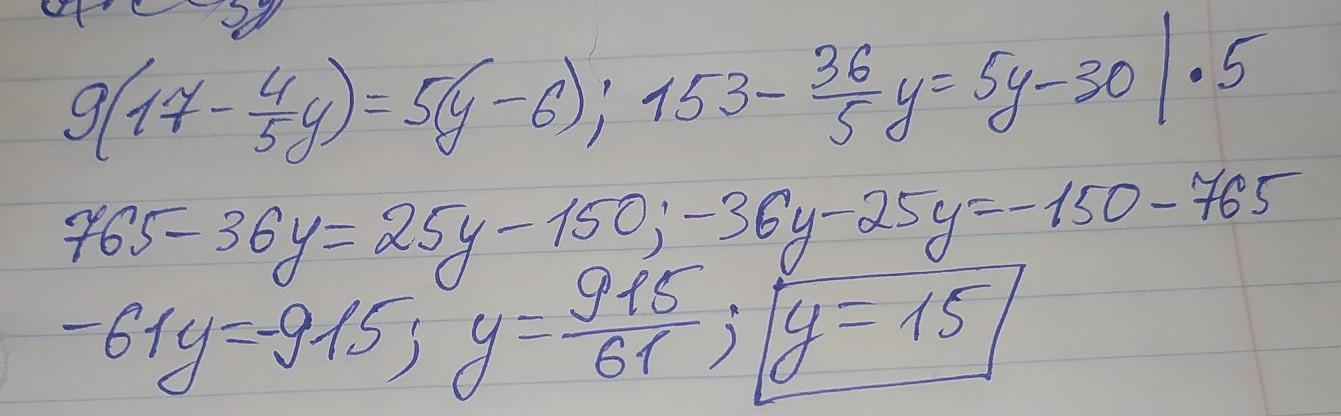 9(17 - 4/5 y) = 5(y - 6); 153 - 36/5 y = 5y - 30 | · 5
765 - 36y = 25y - 150; -36y - 25y = -150 - 765
-61y = -915; y = 915/61; y = 15